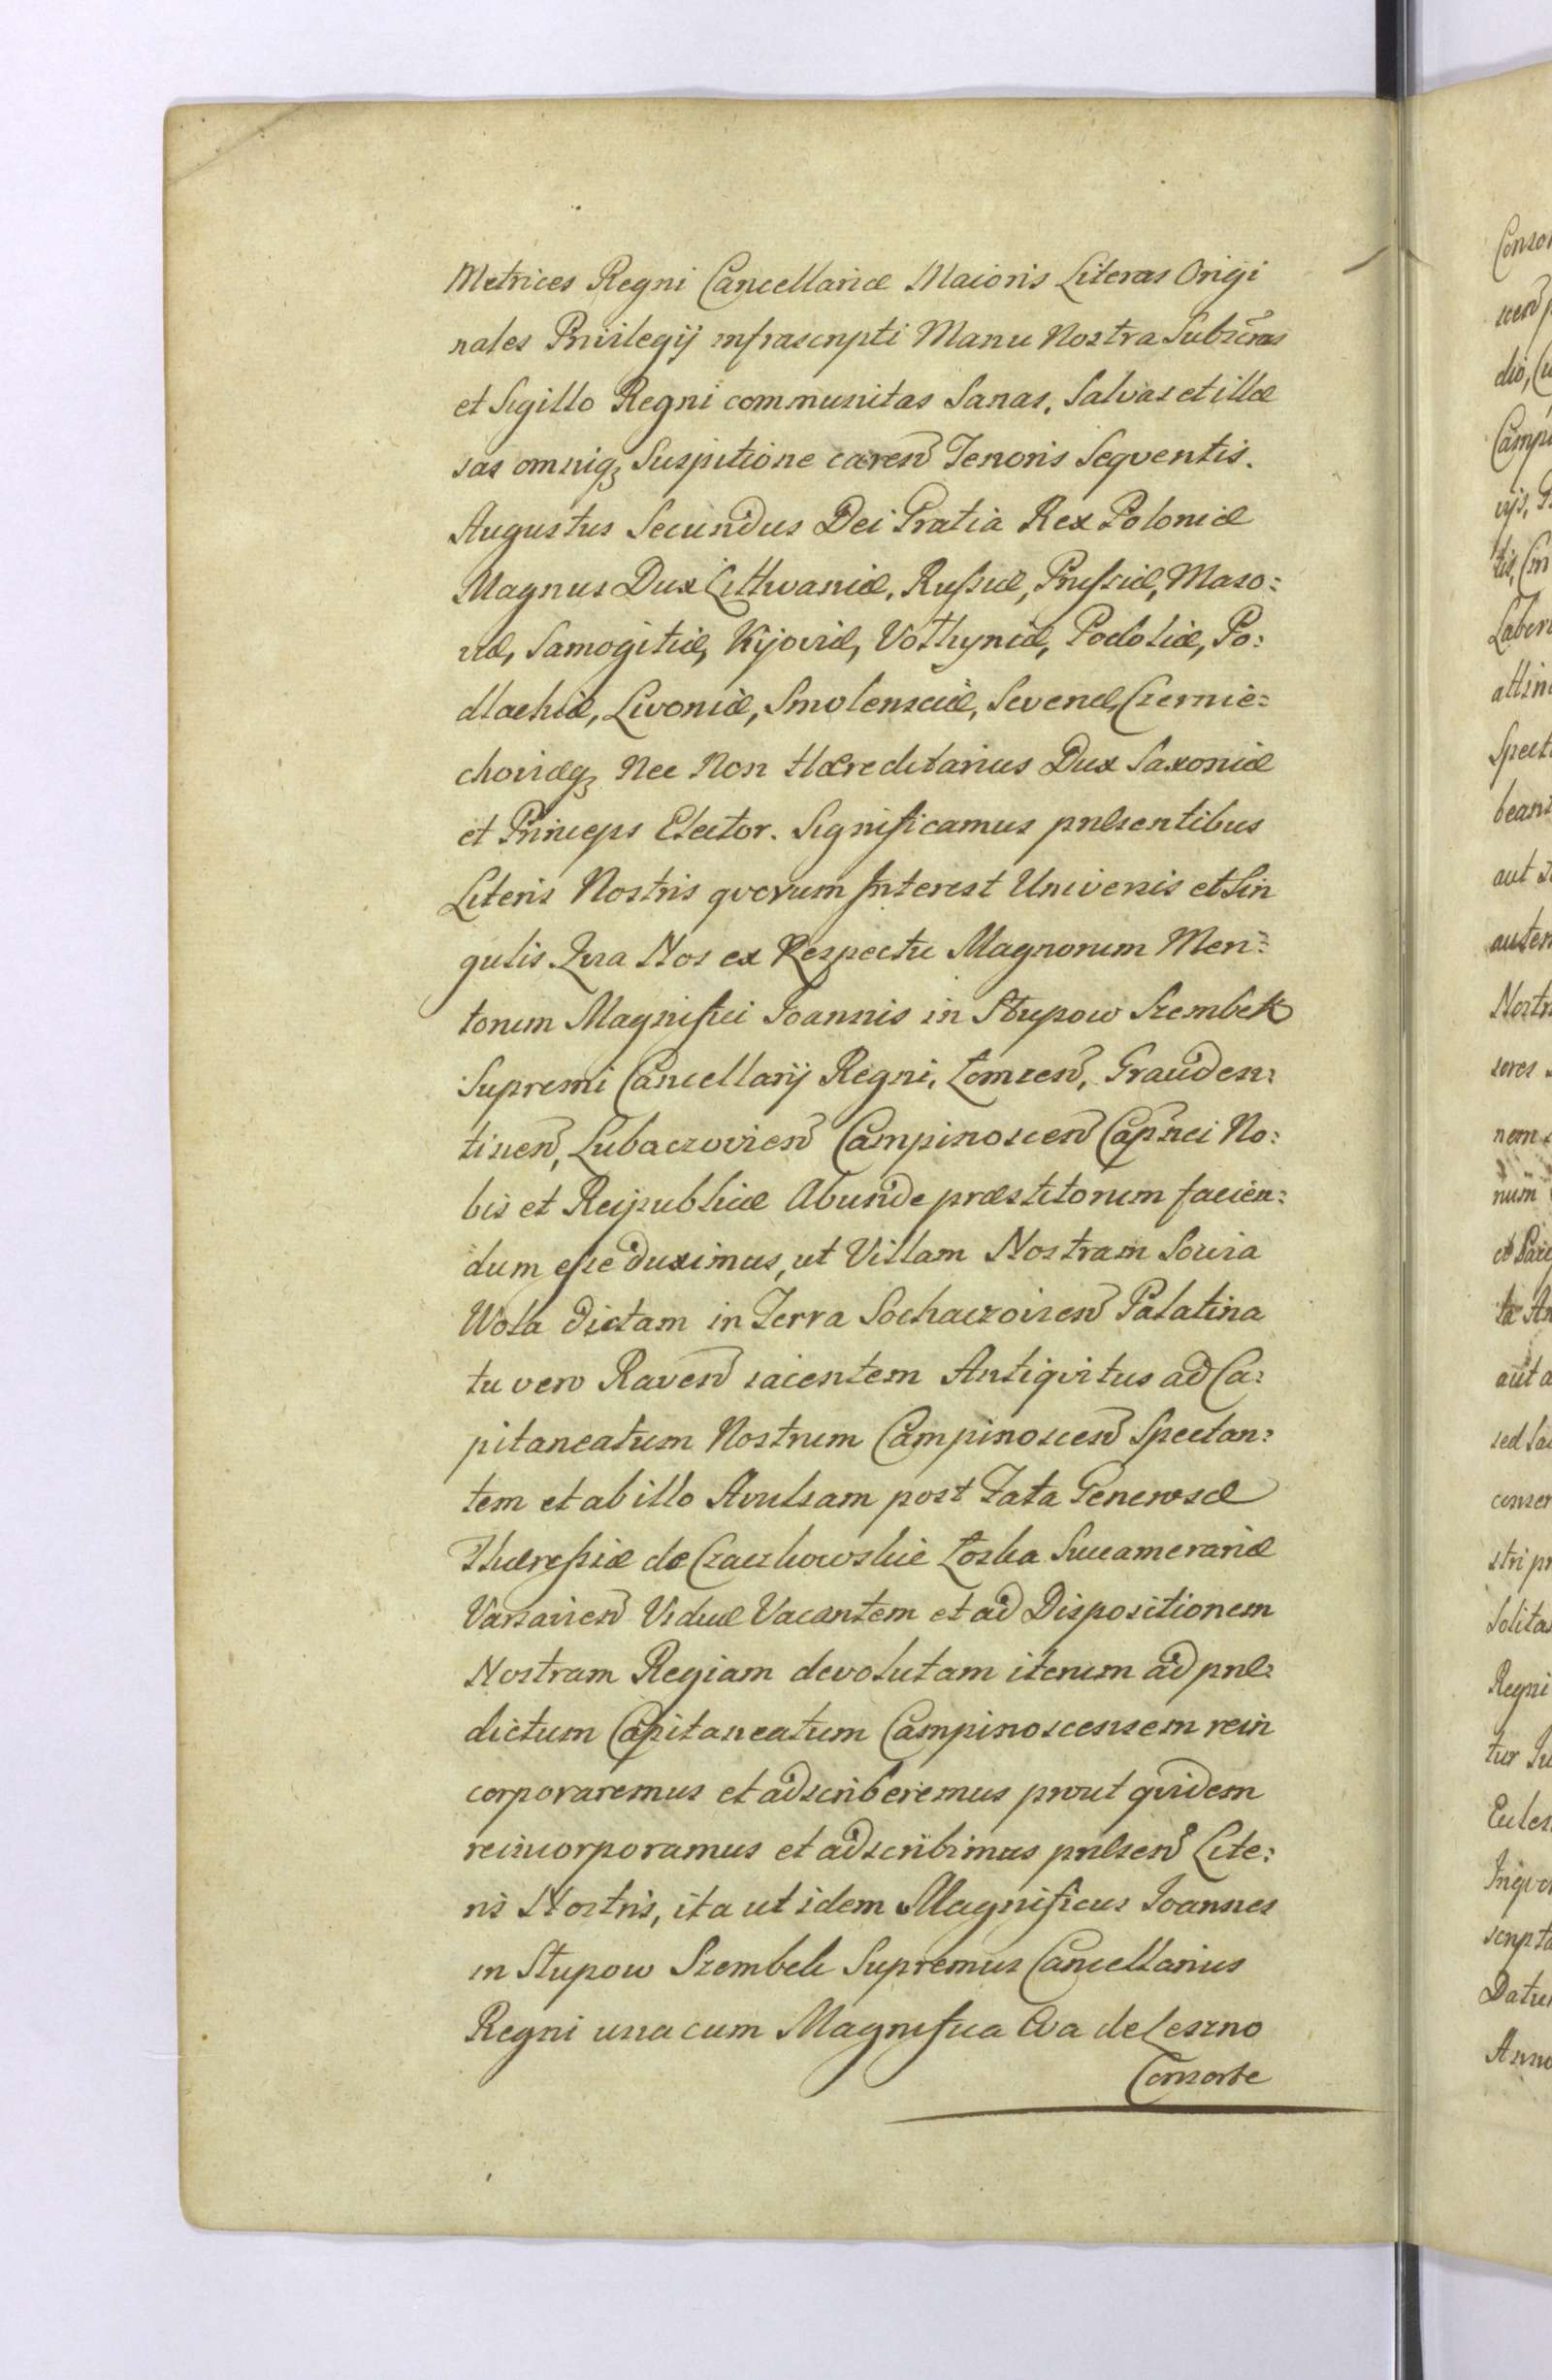 Metrices Regni Cancellariæ Maioris Literas Origi
nales Privilegij infrascripti Manu Nostra Subscras
et Sigillo Regni communitas Sanas, Salvas et illæ
sas omniq3 Suspitione caren Tenoris Seqventis.
Augustus Secundus Dei Gratia Rex Poloniæ
Magnus Dux Litthvaniæ, Russiæ, Prussiæ, Maso:
viæ, Samogitiæ, Kijoviæ, Volhyniæ, Podoliæ, Po:
dlachiæ, Livoniæ, Smolensciæ, Severiæ, Czernie:
choviæq3 Nec Non Hæreditarius Dux Saxoniæ
et Princeps Elector. Significamus præsentibus
Literis Nostris qvorum Interest Universis et Sin
gulis. Qvia Nos ex Respectu Magnorum Meri:
torum Magnifici Joannis in Słupow Szembek
Supremi Cancellarij Regni, Łomzen, Grauden:
tinen, Lubaczovien Campinoscen Capnei No:
bis et Reipublicæ Abunde præstitorum facien:
dum esse duximus, ut Villam Nostram Sowia
Wola dictam in Terra Sochaczovien Palatina
tu vero Raven iacentem Antiqvitus ad Ca:
pitaneatum Nostrum Campinoscen Spectan:
tem et ab illo Avulsam post Fata Generosæ
Theressiæ de Czaczkowskie Łoska Succamerariæ
Varsavien Viduæ Vacantem et ad Dispositionem
Nostram Regiam devolutam iterum ad præ:
dictum Capitaneatum Campinoscensem rein
corporaremus et adscriberemus prout qvidem
reincorporamus et adscribimus præsen Lite:
ris Nostris, ita ut idem Magnificus Joannes
in Słupow Szembek Supremus Cancellarius
Regni una cum Magnifica Eva de Leszno
Consorte